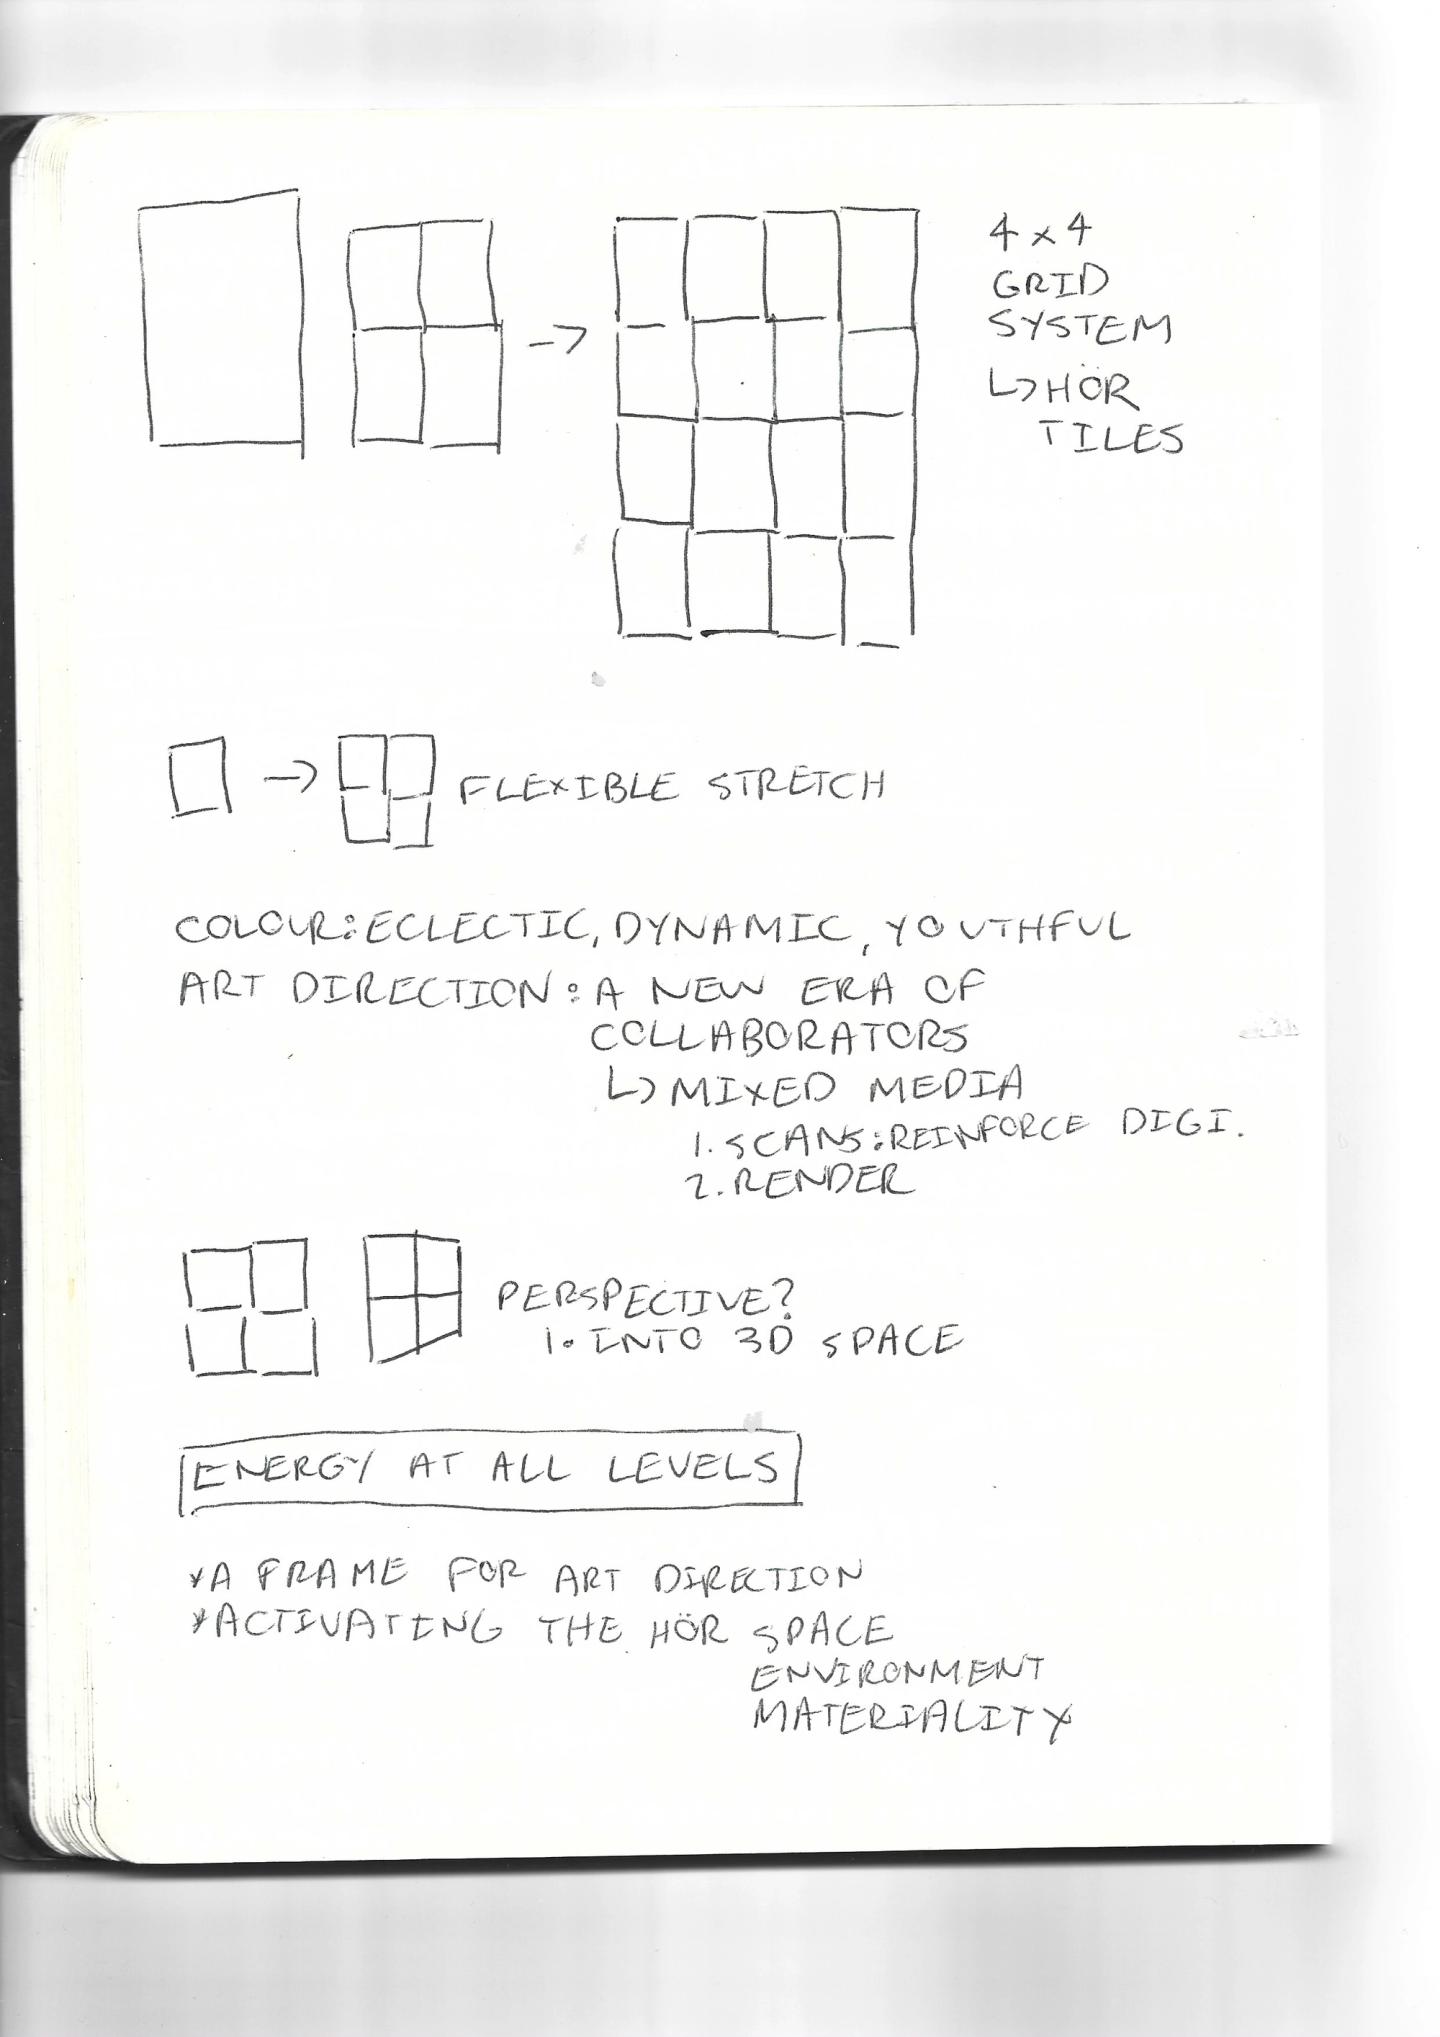 4 x 4
GRID
SYSTEM
↳ HÖR
TILES
→
→ FLEXIBLE STRETCH
COLOUR: ECLECTIC, DYNAMIC, YOUTHFUL
ART DIRECTION: A NEW ERA OF
COLLABORATORS
↳ MIXED MEDIA
1. SCANS: REINFORCE DIGI.
2. RENDER
PERSPECTIVE?
1. INTO 3D SPACE
ENERGY AT ALL LEVELS
*A FRAME FOR ART DIRECTION
*ACTIVATING THE HÖR SPACE
ENVIRONMENT
MATERIALITY